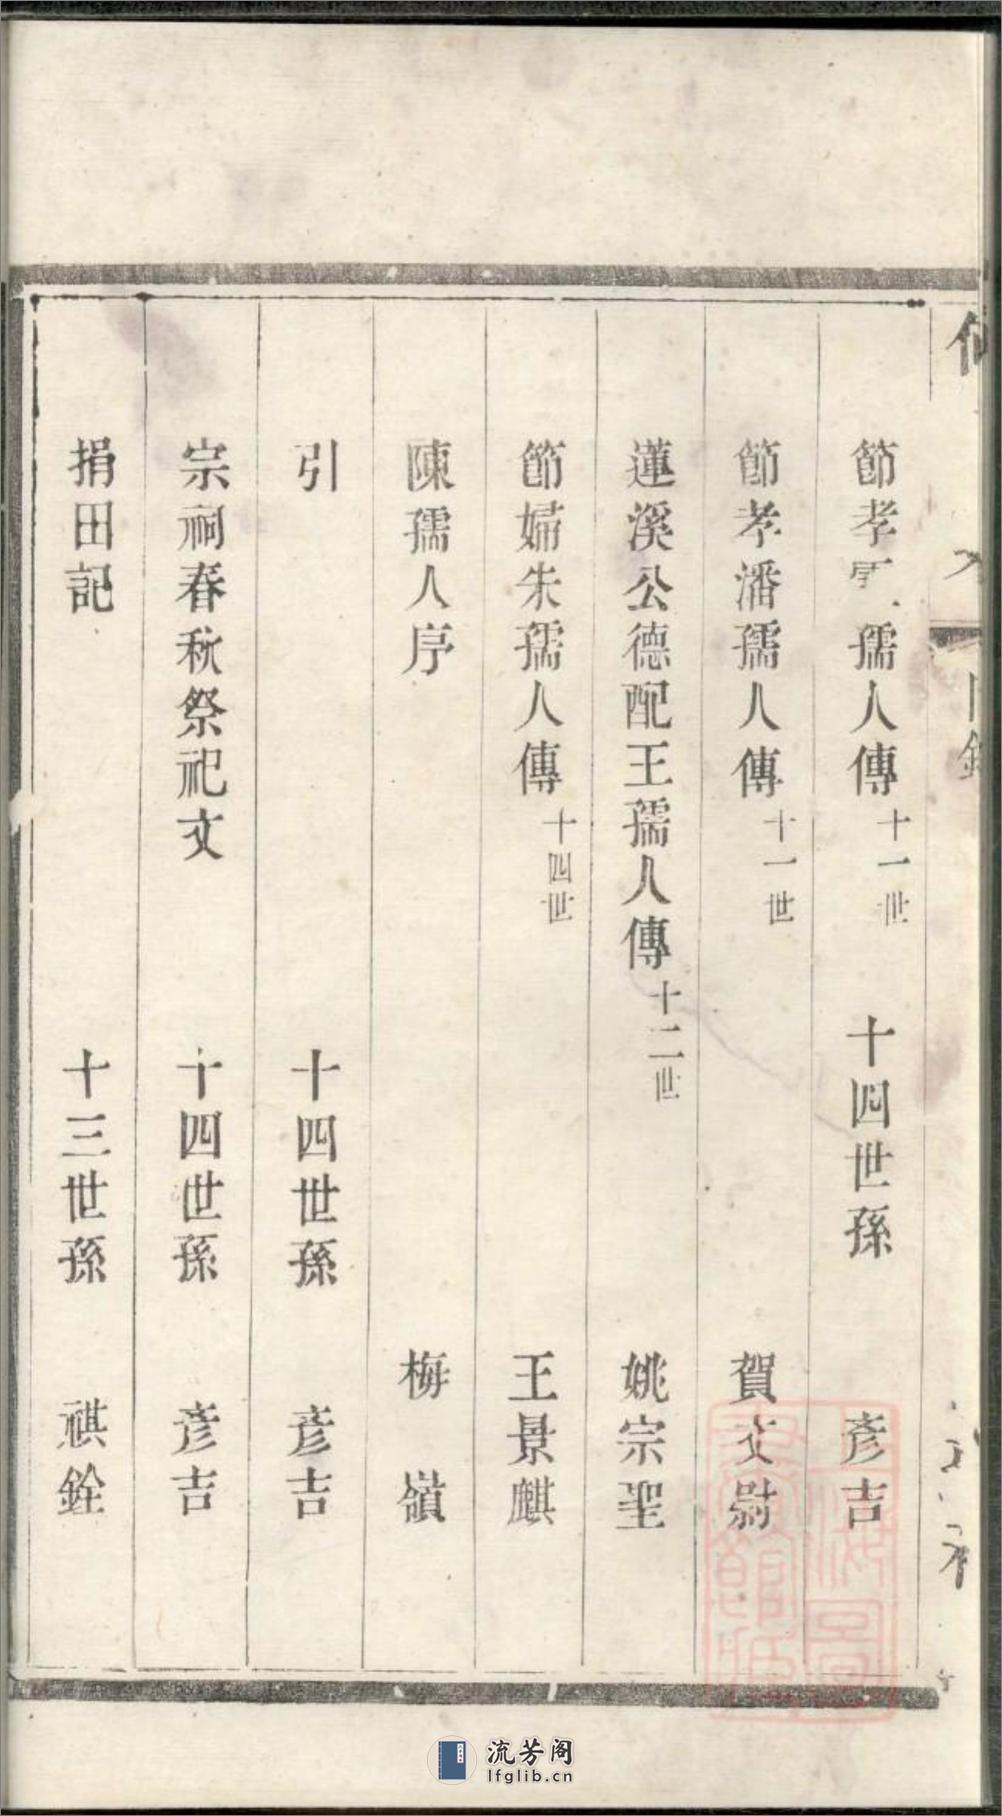 節孝 孺人傳 十一世 十四世孫 彥吉
節孝潘孺人傳 十一世 賀文尉
蓮溪公德配王孺人傳 十二世 姚宗聖
節婦朱孺人傳 十四世 王景麒
陳孺人序 梅嶺
引 十四世孫 彥吉
宗祠春秋祭祀文 十四世孫 彥吉
捐田記 十三世孫 祺銓
流芳阁
lfglib.cn